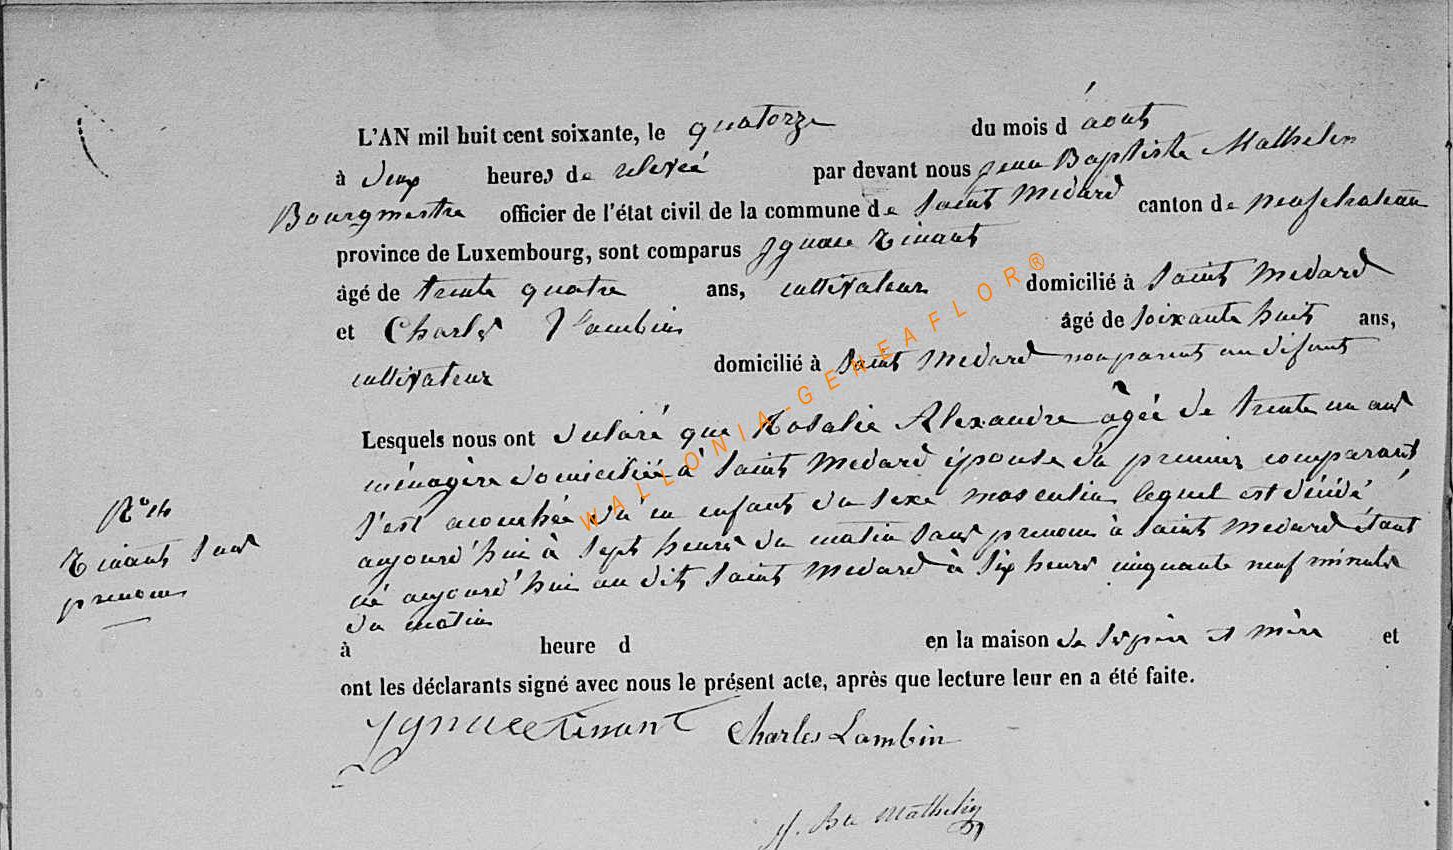 L'AN mil huit cent soixante, le quatorze du mois d'août
à deux heures de relevée par devant nous Jean Baptiste Mathelin
Bourgmestre officier de l'état civil de la commune de Saint Médard canton de neufchateau
province de Luxembourg, sont comparus Ignace Tinant
âgé de trente quatre ans, cultivateur domicilié à Saint Médard
et Charles Lambin âgé de soixante huit ans,
cultivateur domicilié à Saint Médard non parent au défunt
Lesquels nous ont déclaré que Rosalie Alexandre âgée de trente un ans
ménagère domiciliée à Saint Médard épouse du premier comparant
s'est accouchée d'un enfant du sexe masculin lequel est décédé
aujourd'hui à sept heures du matin sans prenom à Saint Médard étant
né aujourd'hui au dit Saint Médard à six heures cinquante neuf minutes
du matin
à heure d en la maison de ses père et mère et
ont les déclarants signé avec nous le présent acte, après que lecture leur en a été faite.
Ygnace Tinant Charles Lambin
J. Bte Mathelin
Tinant sans
prenom
WALLONIA-GENEAFLOR®